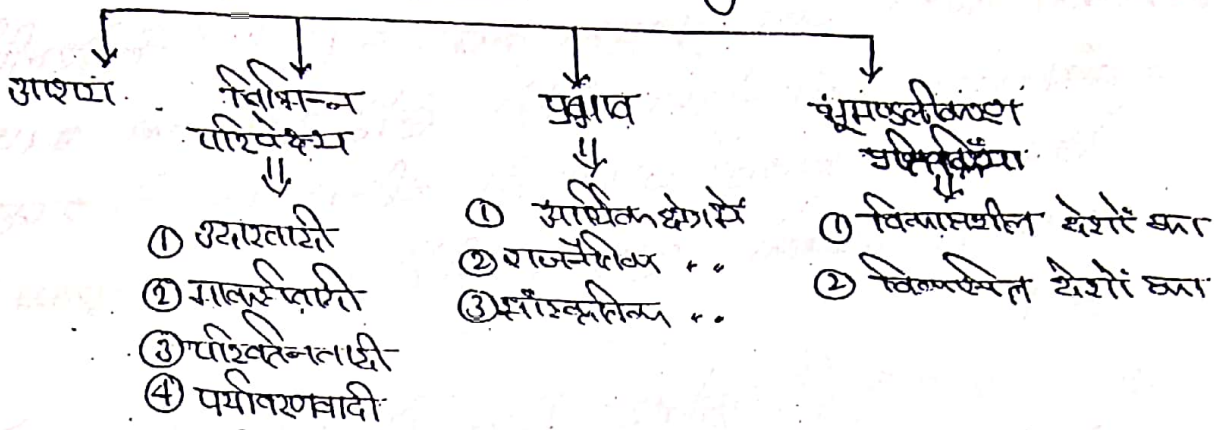 आशय
विभिन्न
परिपेक्ष्य
① उदारवादी
② मार्क्सवादी
③ परिवर्तनवादी
④ पर्यावरणवादी
प्रभाव
① आर्थिक क्षेत्र में
② राजनैतिक " "
③ सांस्कृतिक " "
भूमण्डलीकरण
① विकासशील देशों का
② विकसित देशों का